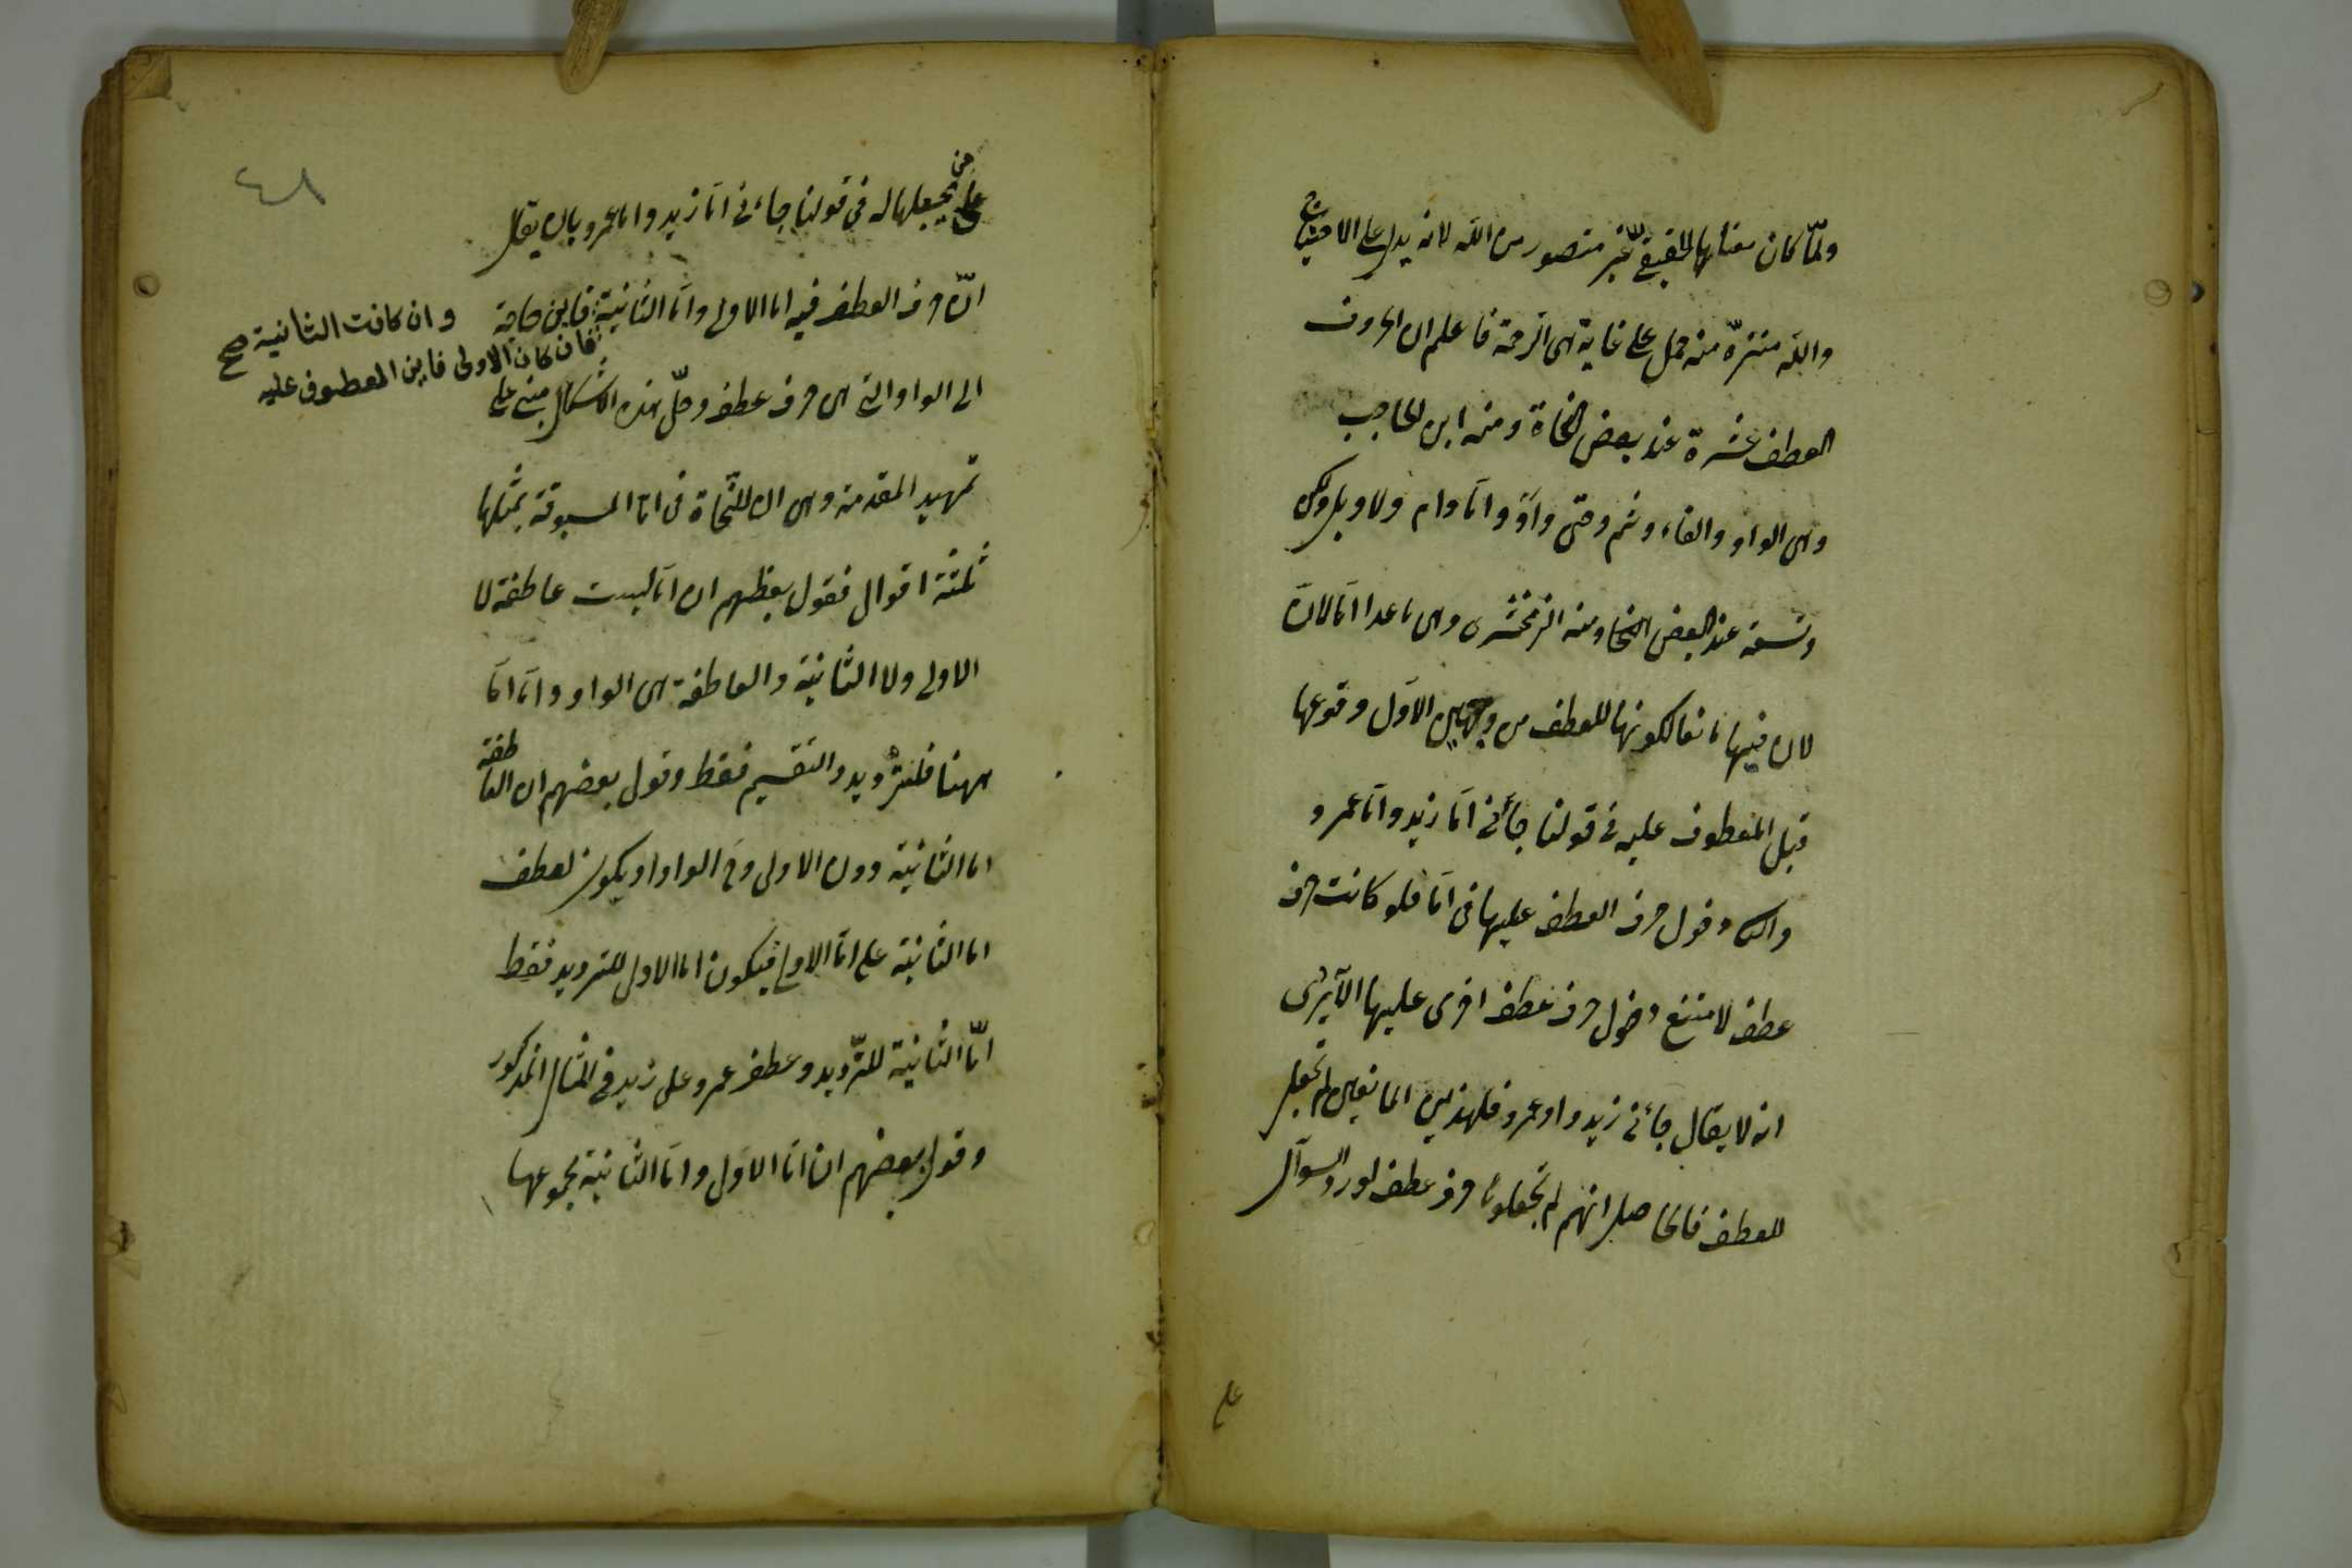 ولمّا كان معناها الحقيقي غير متصور من الله لانه يدل على الاحتياج
والله منزّه منه حمل على غاية هى الرحمة فاعلم ان الحروف
العطف عشرة عند بعض النحاة ومنه ابن الحاجب
وهى الواو والفاء وثم وحتى واَو واِمّا وام ولا وبل ولكن
وتسعة عند البعض النحا ومنه الزمخشرى وهى ما عدا امّا لانّ
لان فيها مانعا لكونها للعطف من وجهين الاوّل وقوعها
قبل المعطوف عليه فى قولنا جأنى امّا زيد وامّا عمرو
والثا دخول حرف العطف عليها فى امّا فلو كانت حرف
عطف لامتنع دخول حرف عطف اخرى عليها الا يرى
انه لا يقال جأنى زيد و او عمرو فلهذين المانعين لم تجعل
للعطف فالحاصل انهم لم يجعلوها حرف عطف لورود السوآل
على
٤٨
على من يجعلها له فى قولنا جاءنى امّا زيد واما عمرو بان يقال
انّ حرف العطف فيه اما الاولى وامّا الثانية فاين حاجة
فان كان الاولى فاين المعطوف عليه
وان كانت الثانية صح
الى الواو التى هى حرف عطف وحلّ هذه الاشكال مبنى على
تمهيد المقدمة وهى ان للنّحاة فى امّا المسبوقة بمثلها
ثلثة اقوال فقول بعظهم ان امّا ليست عاطفة لا
الاولى ولا الثانية والعاطفة هى الواو وامّا امّا
ههنا فللترديد والتقسيم فقط وقول بعضهم ان العاطفة
اما الثانية دون الاولى وح الواو او يكون لعطف
اما الثانية على امّا الاولى فيكون اما الاولى للترديد فقط
امّا الثانية للتّرديد وعطف عمرو على زيد فى المثال المذكور
وقول بعضهم ان امّا الاوّل وامّا الثانية مجموعها